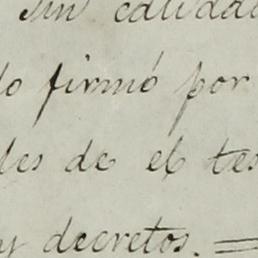 sin calidad
lo firmó por
les de el tes
y decretos. =